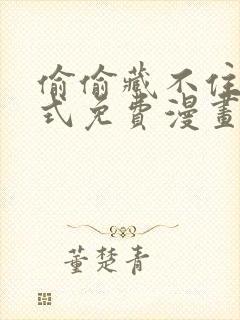 偷偷藏不住
式免費漫畫
董楚青